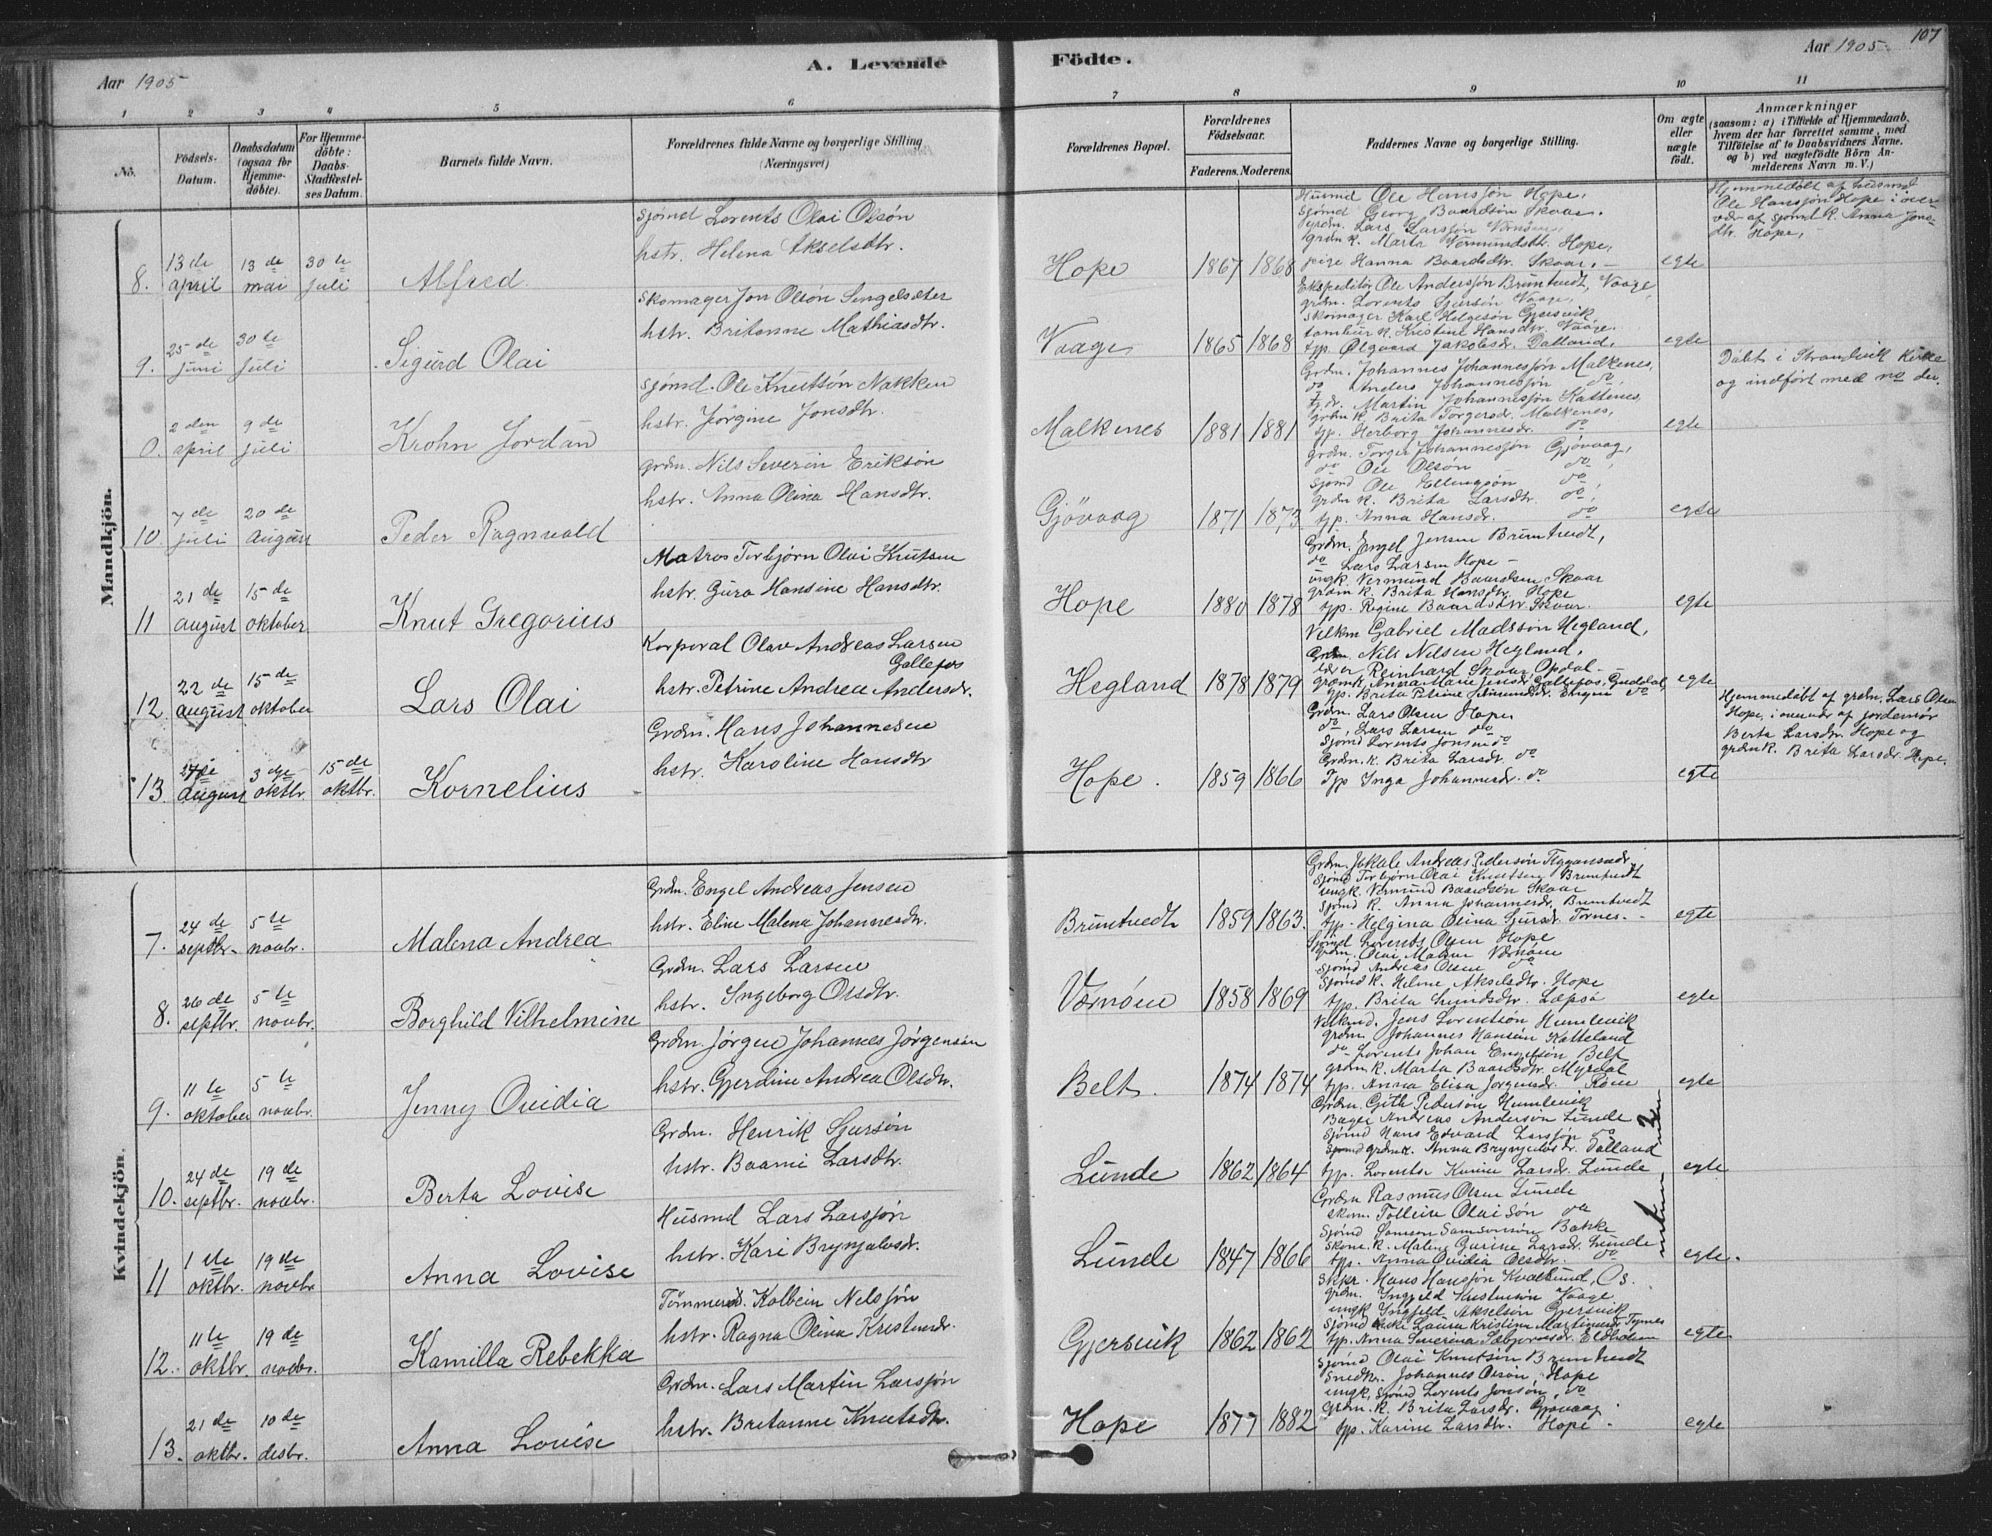 Aar 1905
A. Levende
Födte.
Aar 1905
107
1 2 3 4 5 6 7 8 9 10 11
No.
Födsels-Datum.
Daabsdatum (ogsaa for Hjemme-döbte).
For Hjemme-döbte: Daabs-Stadfæstel-ses Datum.
Barnets fulde Navn.
Forældrenes fulde Navne og borgerlige Stilling (Næringsvei)
Forældrenes Bopæl.
Forældrenes Födselsaar.
Faderens. Moderens.
Faddernes Navne og borgerlige Stilling.
Om ægte eller uægte födt.
Anmærkninger
(saasom: a) i Tilfælde af Hjemmedaab, hvem der har forrettet samme, med Tilföielse af to Daabsvidners Navne. og b) ved uægtefödte Börn An-melderens Navn m. V.)
Mandkjön.
8. 13 de april 13 de mai 30 te juli
Alfred
Sjømd Lorents Olai Olsøn
hstr. Helena Akselsdtr.
Hope 1867 1868
Husmd Ole Hansøn Hope,
Sjømd Georg Baardsøn Skaar.
Lars Larssøn Værnøen
grdm k. Marta Vermundsdtr. Hope,
pige Hanna Baardsdtr. Skaar.
egte
Hjemmedøbt af husmd
Ole Hansøn Hope i over-
vær af sjømd k. Anna Jons-
dtr. Hope.
9. 25 de juni 30 te juli
Sigurd Olai
Skomager Jon Olsøn Sengelsæter
hstr. Britanne Mathiasdtr.
Vaage 1865 1868
Ekspeditør Ole Anderssøn Brüntvedt, Vaage,
grdm. Lorents Sjursøn Vaage,
Skomager Karl Helgesøn Gjersvik
tambur k. Kristine Hansdtr. Vaage.
tjp. Ølgaard Jakobsdr. Dalland.
egte
0. 2 den april 9 de juli
Krohn Jordan
Sjømd. Ole Knutsøn Nakken
hstr. Jørgine Jonsdtr.
Malkenes 1881 1881
Grdm. Johannes Johannessøn Malkenes,
do Anders Johannessøn do
Martin Johannessøn Kattenes,
grdm k. Brita Torgersdr. Malkenes,
tjp. Herborg Johannesdr. do
egte
Døbt i Strandvik Kirke
og indført med no der.
10. 7 de juli 20 de august
Peder Ragnvald
grdm. Nils Severin Eriksøn
hstr. Anna Olina Hansdtr.
Gjøvaag 1871 1873
grdm. Torger Johannessøn Gjøvaag,
do Ole Olsøn do
Sjømd Ole Ellingsøn do
grdm k. Brita Larsdtr. do
tjp. Anna Hansdr. do
egte
11 21 de august 15 de oktober
Knut Gregorius
Matros Torbjørn Olai Knutsen
hstr. Guro Hansine Hansdtr.
Hope 1880 1878
Grdm. Engel Jensen Brüntvedt,
do Lars Larsen Hope
ungk. Vermund Baardsen Skaar
grdm k. Brita Hansdtr. Hope
tjp. Regine Baardsdtr. Skaar.
egte
12. 22 de august 15 de oktober
Lars Olai
Korporal Olav Andreas Larsen Gallefos
hstr. Petrine Andrea Andersdr.
Hegland 1878 1879
Velkm Gabriel Madssøn Hegland,
Grdm Nils Nilsen Hegland,
lærer Reinhard Skaar Opdal
egte
13. 27 de august 3 dje oktbr. 15 de oktbr.
Kornelius
Grdm. Hans Johannesen
hstr. Karoline Hansdtr
Hope. 1859 1866
Grdm. Lars Olsen Hope
do, Lars Larsen do
Sjømd Lorents Jonsen do
Grdm. k. Brita Larsdtr. do
Tjp Inga Johannesdr. do
egte
Hjemmedøbt af grdm. Lars Olsen
Hope, i overvær af jordemor
Berta Larsdtr. Hope og
grdm k. Brita Larsdr. Hope.
Kvindekjön.
7. 24 de septbr. 5 te novbr.
Malena Andrea
Grdm. Engel Andreas Jensen
hstr. Eline Malena Johannesdtr.
Brüntvedt 1859 1863.
Grdm. Jakob Andreas Pedersøn
Sjømd Torbjørn Olai Knudtsen Brüntvedt
ungk. Vermund Baardsøn Skaar
Sjømd k. Anna Johannesdr. Brüntvedt
tjp. Helgina Olina Sjursdr. Tornes.
egte
8. 26 de septbr. 5 te novbr.
Borghild Vilhelmine
Grdm. Lars Larsen
hstr. Ingeborg Olsdtr.
Værnøen 1858 1869
Sjømd Lorents Olsen Hope
grdm. Olai Værnøen
Sjømd Andreas Olsen do
Sjømd k. Helene Akselsdtr. Hope
tjp. Brita Lepsø
egte
9. 11 te oktober 5 te novbr.
Jenny Ovidia
Grdm. Jørgen Johannes Jørgensen
hstr. Gjerdine Andrea Olsdtr.
Belt. 1874 1874
Velkmd. Jens Lorentsøn Humlevik
grdm. Johannes Hansøn Katteland
do Lorents Johan Engelsøn Belt
grdm k. Marta Baardsdtr. Myrdal
tjp. Anna Elisa Jørgensdr. Røen
egte
10. 24 de septbr. 19 de novbr.
Berta Lovise
Grdm. Henrik Sjursøn
hstr. Baarni Larsdtr.
Lunde 1862 1864
Grdm. Githle Pedersøn Humlevik
Bager Andreas Andersøn Lunde
Sjømd Hans Edvard Larssøn do
grdm k. Anna Brynjelvsdr. Dalland
tjp. Lorentse Karine Larsdr. Lunde
egte
11 1 ste oktbr. 19 de novbr
Anna Lovise
Husmd Lars Larssøn
hstr. Kari Brynjelvsdr.
Lunde 1847 1866
Grdm Rasmus Olsen Lunde
skom. Tollein Olai Søn do
Sjømd Samson Samsonsøn Bakke
Skom. k. Malena Gurine Larsdr. Lunde
tjp. Anna Ovidia Olsdtr. do
egte.
12. 11 te oktbr. 19 de novbr.
Kamilla Rebekka
Tømmermd. Kolbein Nelssøn
hstr. Ragna Olina Kristensdr.
Gjersvik 1862 1862
Skpr. Hans Hanssøn Kvalsund, Os.
grdm. Ingjeld Kristensøn Vaage
ungk Ingjeld Akselsøn Gjersvik
egte
13. 21 de oktbr. 10 de desbr.
Anna Lovise
Grdm. Lars Martin Larssøn
hstr. Britanne Knutsdtr.
Hope 1877 1882
Sjømd Olai Knutsøn Brüntvedt
Snedkr. Johannes Olsøn, Hope
ungk. sjømd Lorents Jonsøn, do
Grdm. k. Brita Larsdr. Gjøvaag.
tjp. Karine Larsdtr. Hope
egte